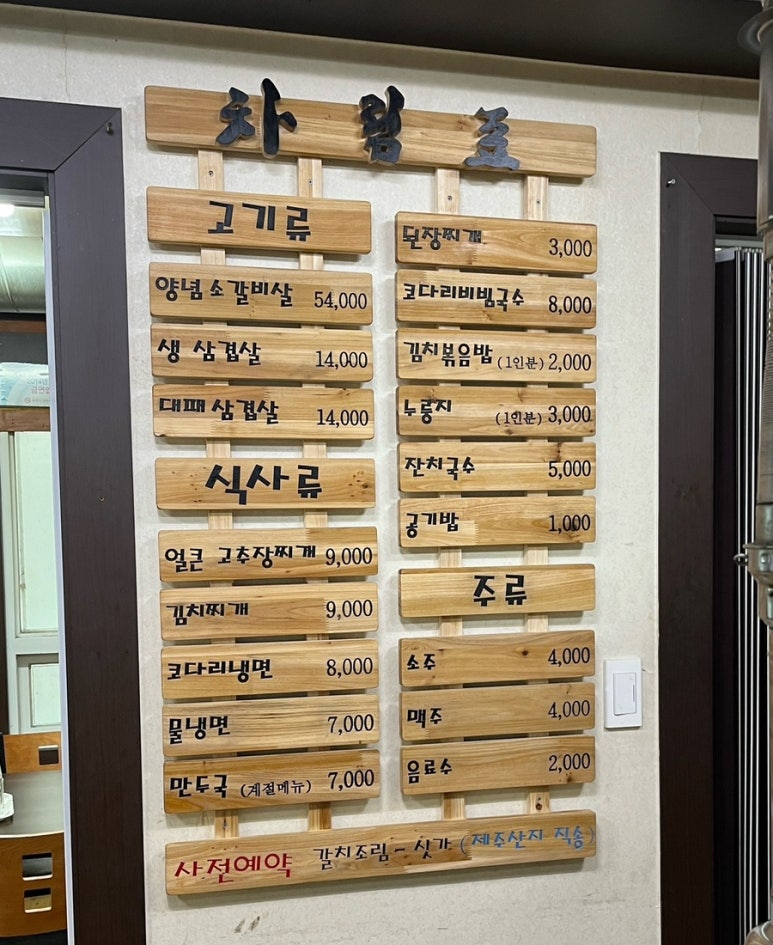 차림표
고기류
양념소갈비살 54,000
생 삼겹살 14,000
대패삼겹살 14,000
식사류
얼큰 고추장찌개 9,000
김치찌개 9,000
코다리냉면 8,000
물냉면 7,000
만두국 (계절메뉴) 7,000
된장찌개 3,000
코다리비빔국수 8,000
김치볶음밥 (1인분) 2,000
누룽지 (1인분) 3,000
잔치국수 5,000
공기밥 1,000
주류
소주 4,000
맥주 4,000
음료수 2,000
사전예약 갈치조림 - 싯가 (제주산지 직송)